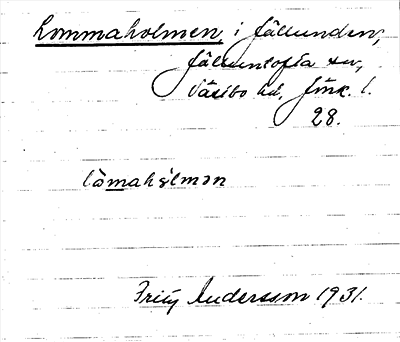 Lommaholmen i Jällunden,
Jälluntofta sn,
Västbo hd. Jönk. l.
28.
låmahålmən
Fritz Andersson 1931.